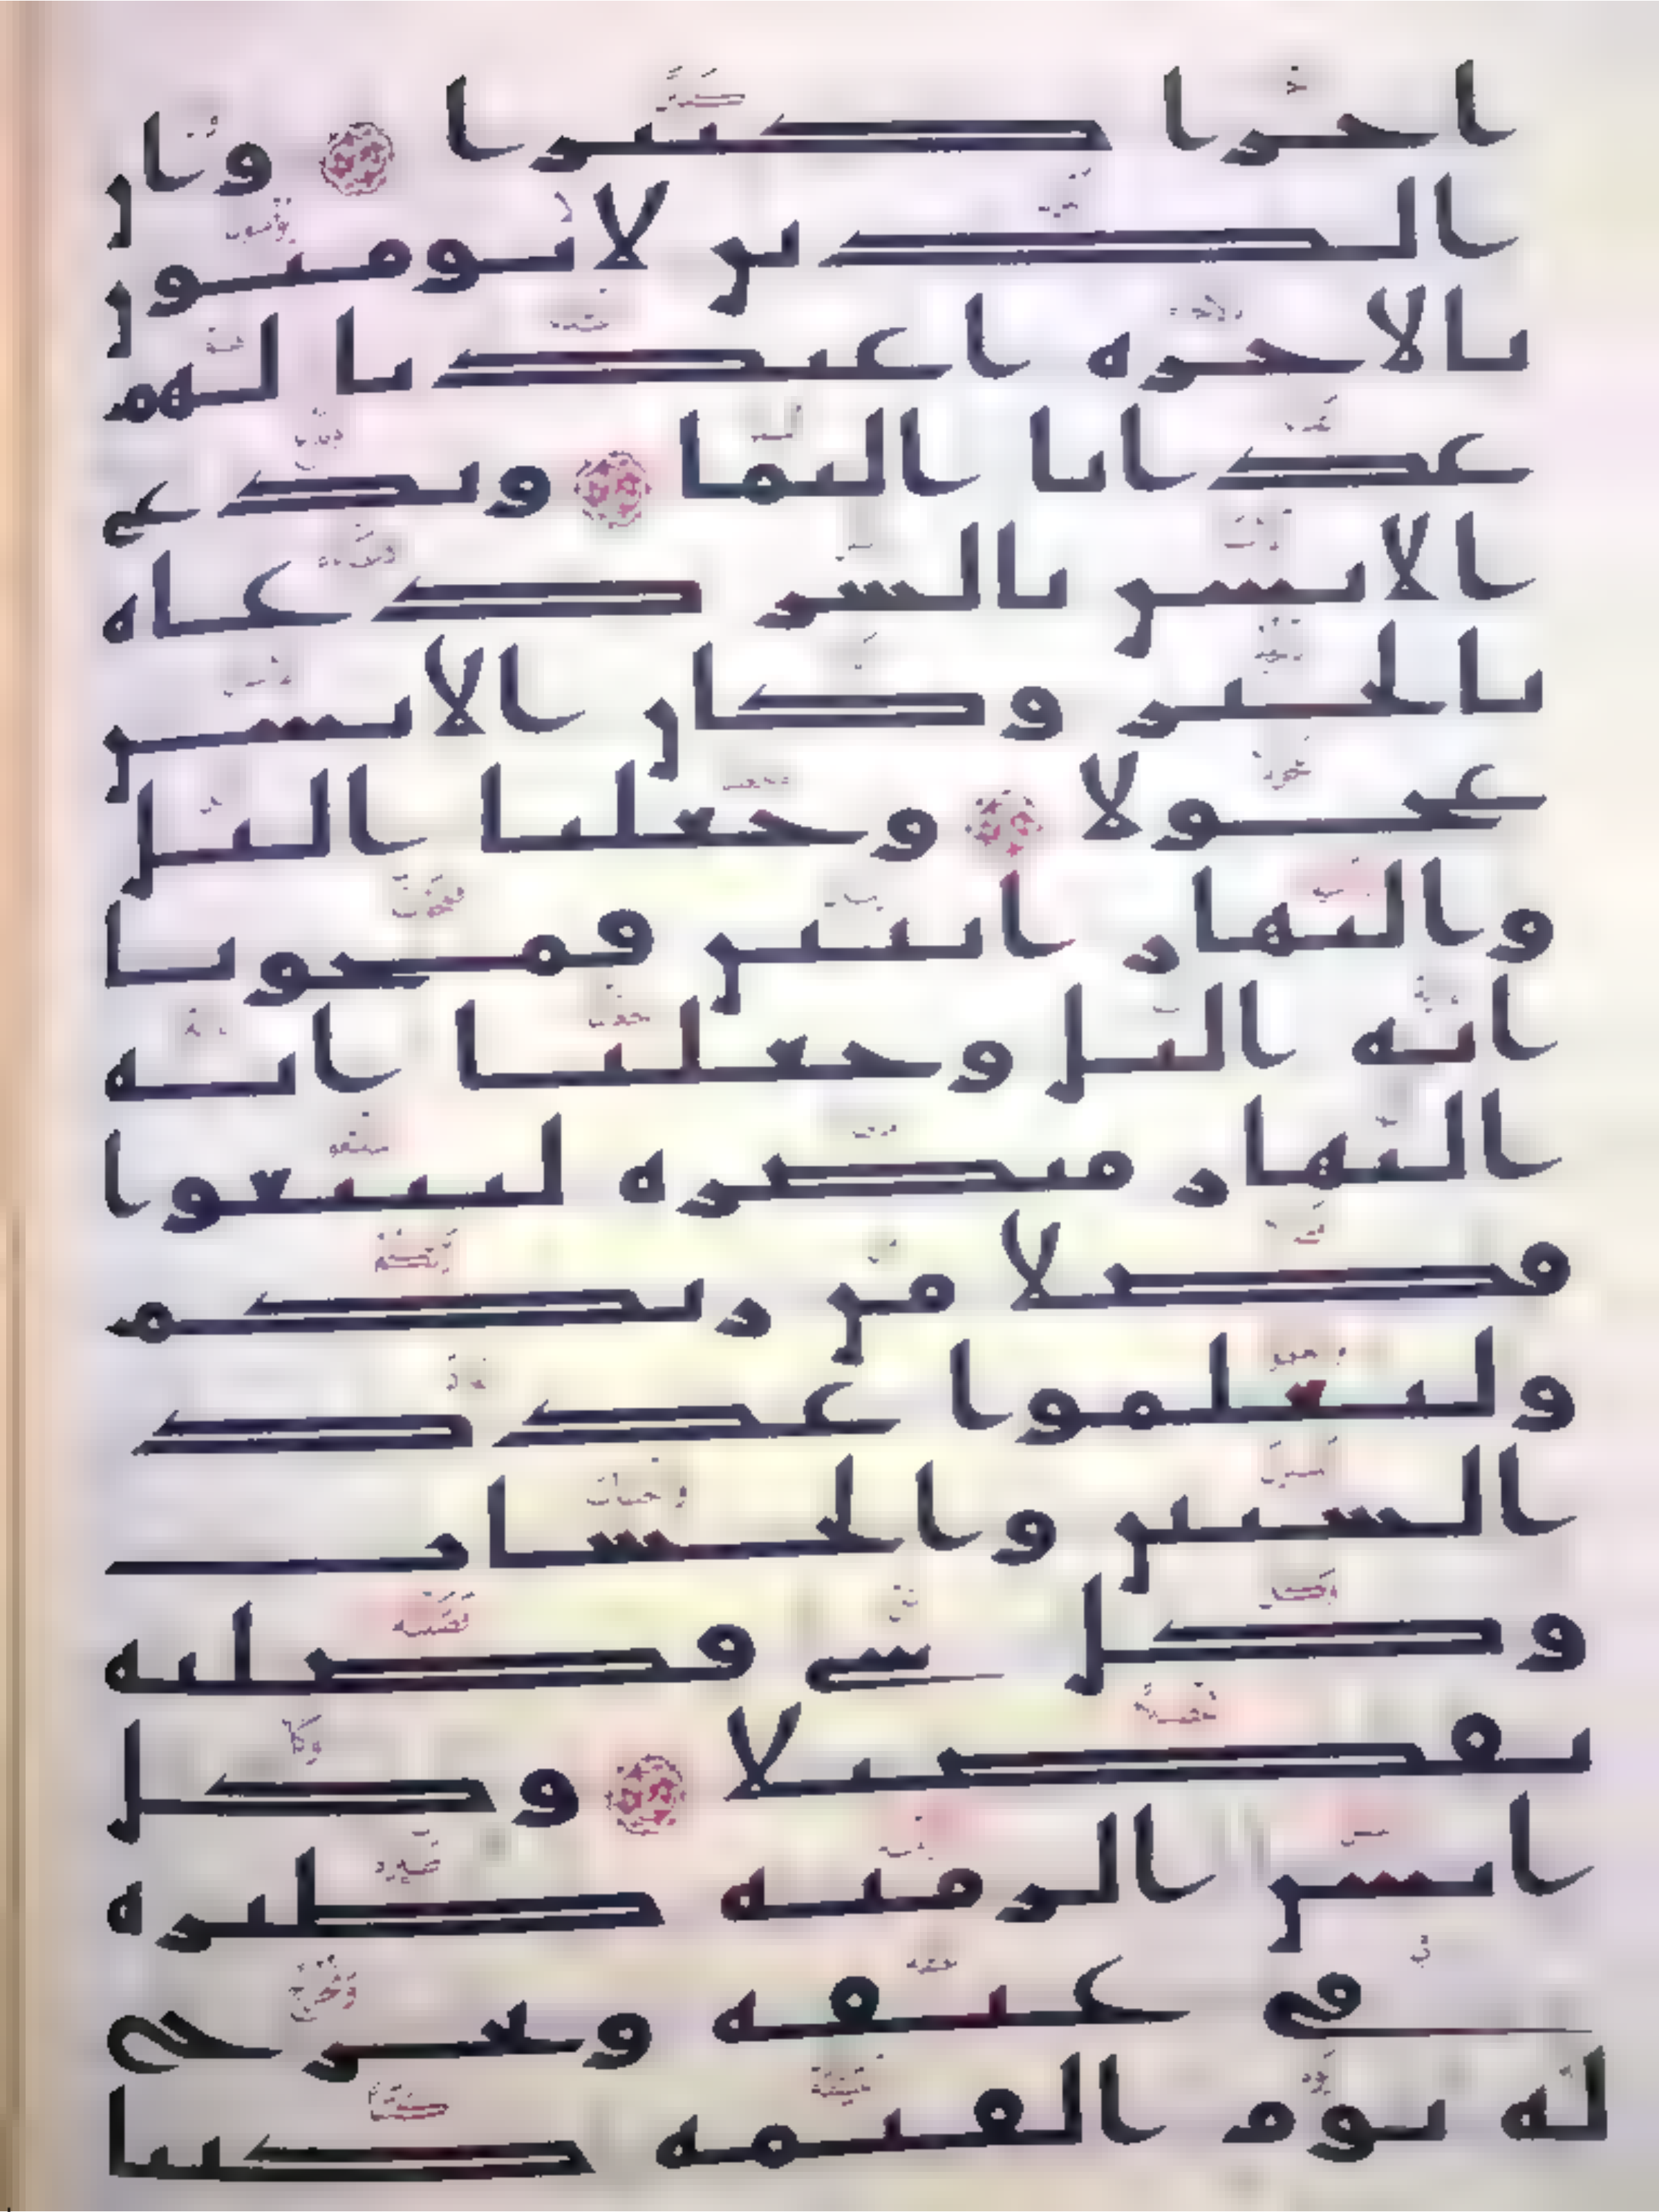 اجرا كبيرا وان
الذين لا يومنون
بالاخره اعتدنا لهم
عذابا اليما ويدع
الانسن بالشر دعاه
بالخير وكان الانسن
عجولا وجعلنا اليل
والنهار ايتين فمحونا
ايه اليل وجعلنا ايه
النهار مبصره لتبتغوا
فضلا من ربكم
ولتعلموا عدد
السنين والحساب
وكل شي فصلنه
تفصيلا وكل
انسن الزمنه طيره
في عنقه ونخرج
له يوم القيمه كتبا